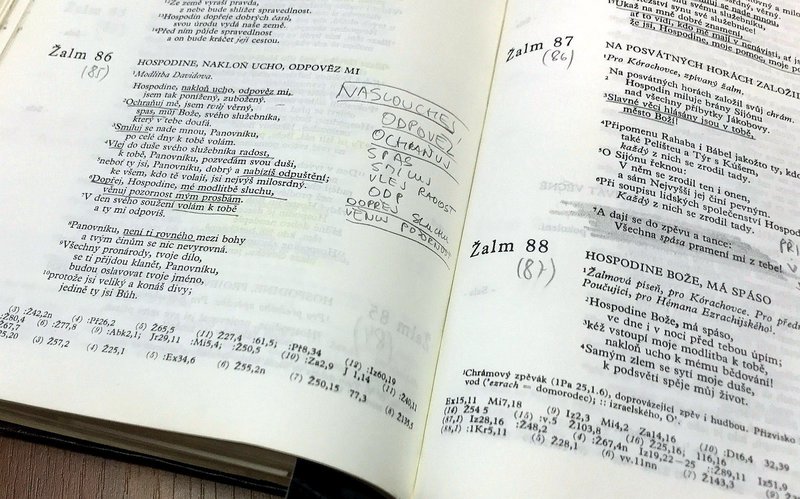 Ze země vyraší pravda,
z nebe bude shlížet spravedlnost.
¹³Hospodin dopřeje dobrých časů,
svou úrodu vydá naše země.
¹⁴Před ním půjde spravedlnost
a on bude kráčet její cestou.
Žalm 86
(85)
HOSPODINE, NAKLOŇ UCHO, ODPOVĚZ MI
¹Modlitba Davidova.
Hospodine, nakloň ucho, odpověz mi,
jsem tak ponížený, zubožený.
²Ochraňuj mě, jsem tvůj věrný,
spas, můj Bože, svého služebníka,
který v tebe doufá.
³Smiluj se nade mnou, Panovníku,
po celé dny k tobě volám.
⁴Vlej do duše svého služebníka radost,
k tobě, Panovníku, pozvedám svou duši,
⁵neboť ty jsi, Panovníku, dobrý a nabízíš odpuštění;
ke všem, kdo tě volají, jsi nejvýš milosrdný.
⁶Dopřej, Hospodine, mé modlitbě sluchu,
věnuj pozornost mým prosbám.
⁷V den svého soužení volám k tobě
a ty mi odpovíš.
⁸Panovníku, není ti rovného mezi bohy
a tvým činům se nic nevyrovná.
⁹Všechny pronárody, tvoje dílo,
se ti přijdou klanět, Panovníku,
budou oslavovat tvoje jméno,
¹⁰protože jsi veliký a konáš divy;
jedině ty jsi Bůh.
NASLOUCHEJ
ODPOVĚZ
OCHRAŇUJ
SPAS
SMILUJ
VLEJ RADOST
ODP
DOPŘEJ SLUCHU
VĚNUJ POZORNOST
(3) :Ž42,2n (4) :Př26,2 (5) :Ž65,5 (11) :Ž27,4 :61,5; :Př8,34 (12) :Iz60,19
:Ž80,4 (6) :Ž77,8 (9) :Abk2,1; Jr29,11 :Mi5,4; :Ž50,5 (10) :Za2,9 J 1,14 (11) :Ž40,11
(3) :Ž57,2 (4) :Ž25,1 (5) :Ex34,6 (6) :Ž55,2n (7) :Ž50,15 77,3 (8) :Ž135,5
¹⁷Ukaž na mně dobré znamení,
ať to vidí, kdo mě mají v nenávisti, ať jsou
že jsi, Hospodine, moje pomoc, moje po
Žalm 87
(86)
NA POSVÁTNÝCH HORÁCH ZALOŽIL
¹Pro Kórachovce, zpívaný žalm.
Na posvátných horách založil svůj chrám.
²Hospodin miluje brány Sijónu
nad všechny příbytky Jákobovy.
³Slavné věci hlásány jsou v tobě,
město Boží!
⁴Připomenu Rahaba i Bábel jakožto ty, kdo
také Pelištea a Týr s Kúšem,
každý z nich se zrodil tady.
⁵O Sijónu řeknou:
V něm se zrodil ten i onen,
a sám Nejvyšší jej činí pevným.
⁶Při soupisu lidských společenství Hospod
Každý z nich se zrodil tady.
⁷A dají se do zpěvu a tance:
Všechna spása pramení mi z tebe!
Žalm 88
(87)
HOSPODINE BOŽE, MÁ SPÁSO
¹Žalmová píseň, pro Kórachovce. Pro předn
Poučující, pro Hémana Ezrachijského.
²Hospodine Bože, má spáso,
ve dne i v noci před tebou úpím;
³kéž vstoupí moje modlitba k tobě,
nakloň ucho k mému bědování!
⁴Samým zlem se sytí moje duše,
k podsvětí spěje můj život.
¹Chrámový zpěvák (1Pa 25,1.6), doprovázející zpěv i hudbou. Přízvisko
vod ('ezrach = domorodec); :: izraelského, O'.
Ex15,11 Mi7,18 (9) :Iz2,3 Mi4,2 Za14,16 (10) :Dt6,4 32,39
(14) :Ž54 5 (15) :v.5 Ž103,8 (16) :Ž25,16; 116,16
(87,1) Iz28,16 (2) :Ž48,2 (4) :Ž67,4n Iz19,22–25 ::Ž89,11 Iz51,9
(88,1) ::1Kr5,11 (5) :Ž28,1 (6) vv.11nn (7) :Ž143,3